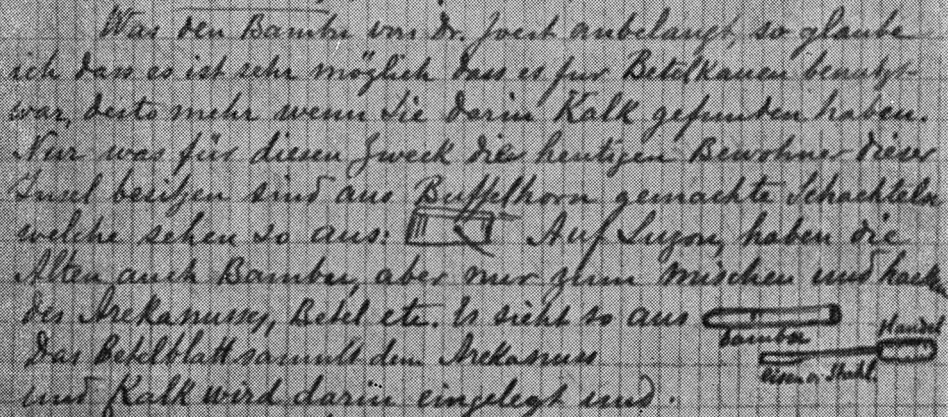 Was den Bambu von Dr. Joest anbelangt, so glaube
ich dass es ist sehr möglich dass es fur Betelkauen benutzt
war, desto mehr wenn Sie darin Kalk gefunden haben.
Nur was für diesen Zweck die heutigen Bewohner dieser
Insel besitzen sind aus Buffelhorn gemachte Schachteln
welche sehen so aus: Auf Luzon, haben die
Alten auch Bambu, aber nur zum mischen und hacken
des Arekanusses, Betel etc. Es sieht so aus
Bambu
Handel
eisen o. Stahl.
Das Betelblatt sammt dem Arekanuss
und Kalk wird darin eingelegt und.